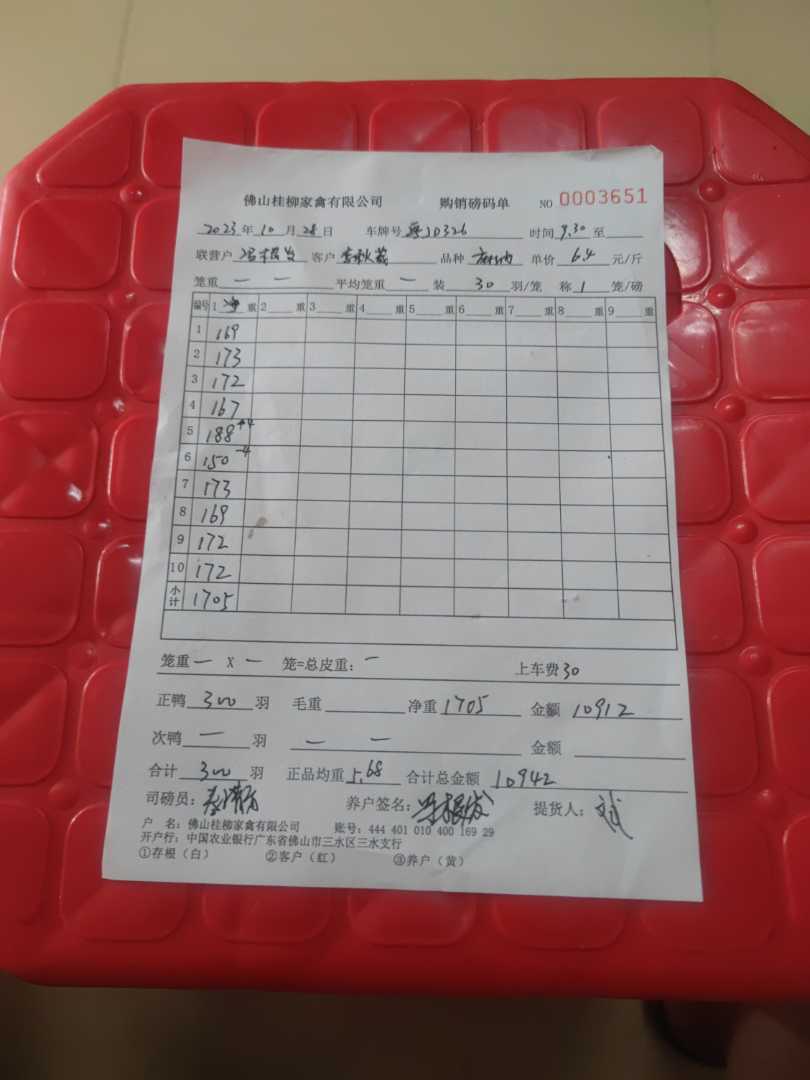 佛山桂柳家禽有限公司 购销磅码单 NO 0003651
2023年10月28日 车牌号 粤JD326 时间 9.30 至
联营户 冯根发 客户 李秋菊 品种 单价 6.4 元/斤
笼重 — — 平均笼重 — 装 30 羽/笼 称 1 笼/磅
编号 1 净 重 2 重 3 重 4 重 5 重 6 重 7 重 8 重 9 重
1 169
2 173
3 172
4 167
5 188 +4
6 150 -4
7 173
8 169
9 172
10 172
小计 1705
笼重 — X — 笼=总皮重: — 上车费 30
正鸭 300 羽 毛重 净重 1705 金额 10912
次鸭 — 羽 — — 金额
合计 300 羽 正品均重 5.68 合计总金额 10942
司磅员: 养户签名: 冯根发 提货人:
户 名: 佛山桂柳家禽有限公司 账号: 444 401 010 400 169 29
开户行: 中国农业银行广东省佛山市三水区三水支行
①存根（白） ②客户（红） ③养户（黄）